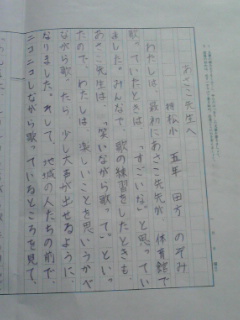 あさこ先生へ
五年 田方 のぞみ
わたしは、最初にあさこ先生が体育館で
歌っていたときは「すごいな」と思ってい
ました。みんなで、歌の練習をしたときも
あさこ先生は、「笑いながら歌って。」といっ
たので、わたしは、楽しいことを思いうかべ
ながら歌ったら、少し大声が出せるように、
なりました。そして、地域の人たちの前で、
ニコニコしながら歌っているところを見て、